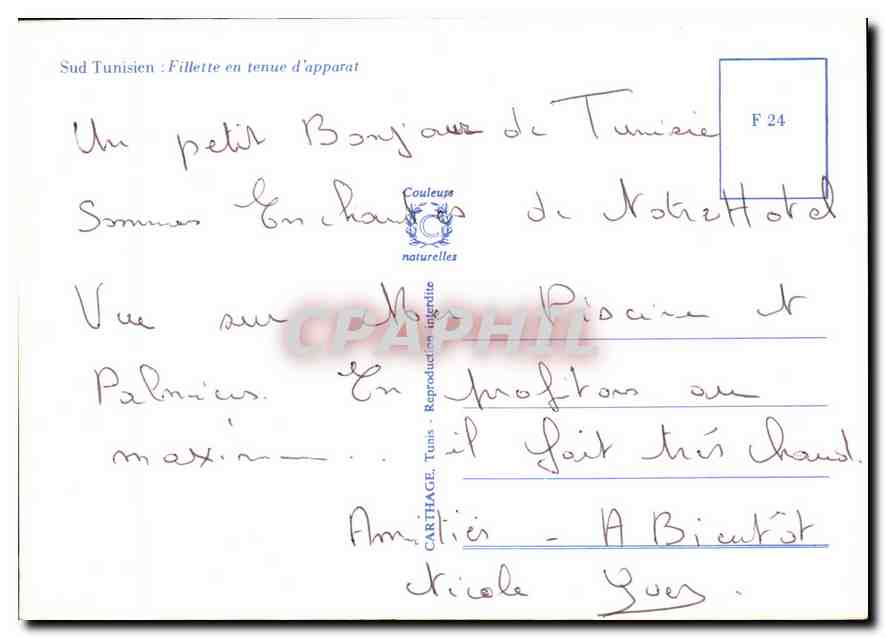 Sud Tunisien : Fillette en tenue d'apparat
F 24
Un petit Bonjour de Tunisie
Sommes Enchantés de Notre Hotel
Couleurs
C
naturelles
Vue sur Mer Piscine et
CPAPHIL
Palmiers. En profitons au
maximum . . il fait très chaud.
CARTHAGE, Tunis - Reproduction interdite
Amitiés - A Bientôt
Nicole Yves.